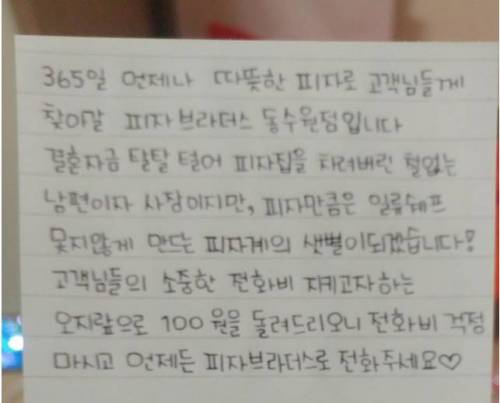 365일 언제나 따뜻한 피자로 고객님들께
찾아갈 피자브라더스 동수원점입니다
결혼자금 탈탈 털어 피자집을 차려버린 철없는
남편이자 사장이지만, 피자만큼은 일류쉐프
못지않게 만드는 피자계의 샛별이되겠습니다!
고객님들의 소중한 전화비 지켜고자하는
오지랖으로 100원을 돌려드리오니 전화비 걱정
마시고 언제든 피자브라더스로 전화주세요♡